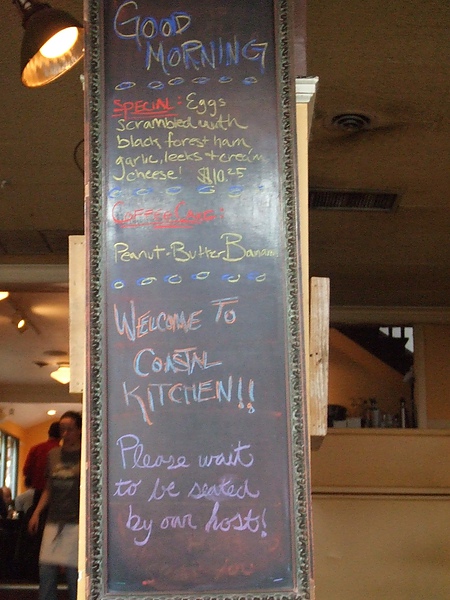 GOOD
MORNING
SPECIAL: Eggs
scrambled with
black forest ham,
garlic, leeks + cream
cheese! $10.25
COFFEE CAKE:
Peanut-Butter Banana
WELCOME TO
COASTAL
KITCHEN!!
Please wait
to be seated
by our host!